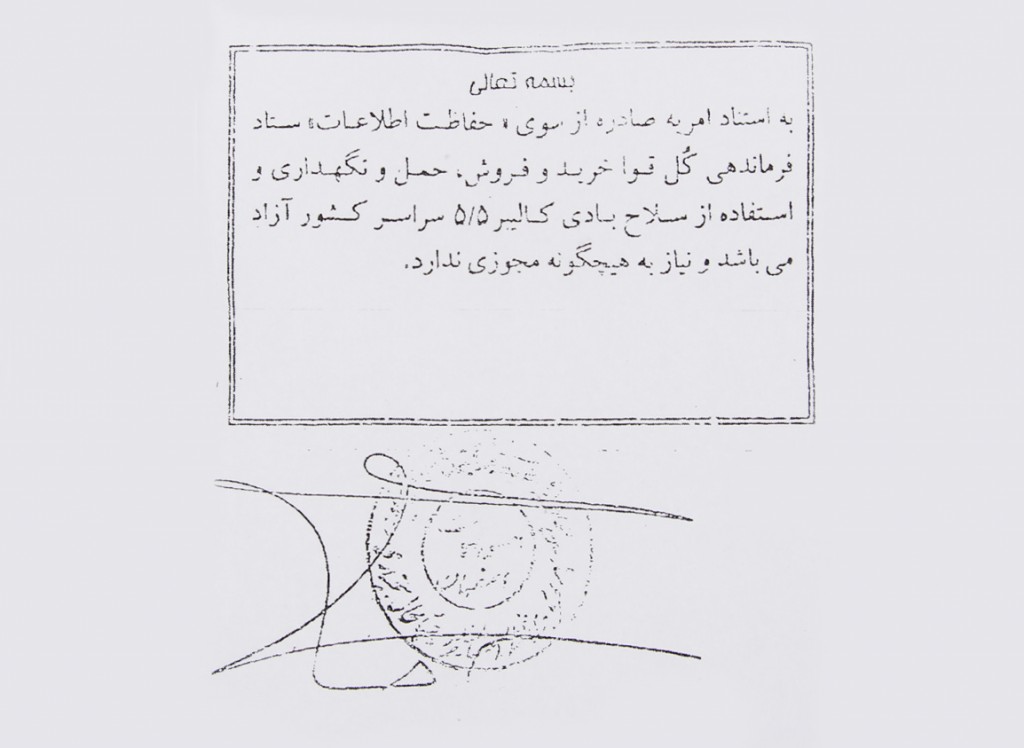 بسمه تعالی
به استناد امریه صادره از سوی « حفاظت اطلاعات» ستاد
فرماندهی کُل قوا خرید و فروش، حمل و نگهداری و
استفاده از سلاح بادی کالیبر ۵/۵ سراسر کشور آزاد
می باشد و نیاز به هیچگونه مجوزی ندارد.